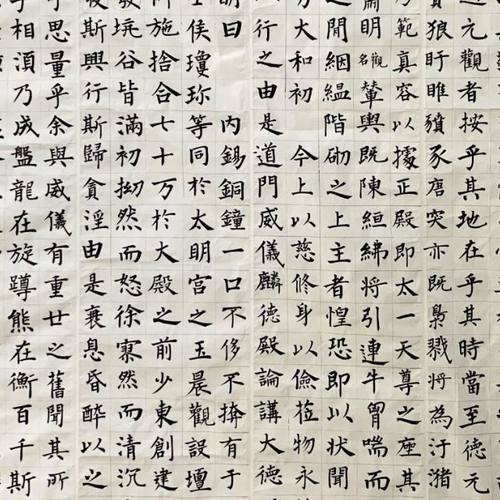 元觀者按乎其地在乎其時當至德元
狼盱睢豶豕唐突亦既梟戮將為汙猪
範真容以據正殿即太一天尊之座其
肅明觀輦輿既陳絙綍將引連牛冐喘而
之閒絪緼階砌之上主者惶恐即以狀聞
方大和初今上以慈修身以儉莅物永
行之由是道門威儀麟德殿論講大德
明曰內錫銅鐘一口不侈不掩有于
士侯瓊珎等同於太明宮之玉晨觀設壇
所施捨合七十万於大殿之前少東創建
境谷皆滿初拗然而怒徐寥然而清沉
斯興行斯歸貪淫由是衰息昏醉以之
乎思量乎余與威儀有重廿之舊聞其所
乎相湏乃成盤龍在旋蹲熊在衡百千斯